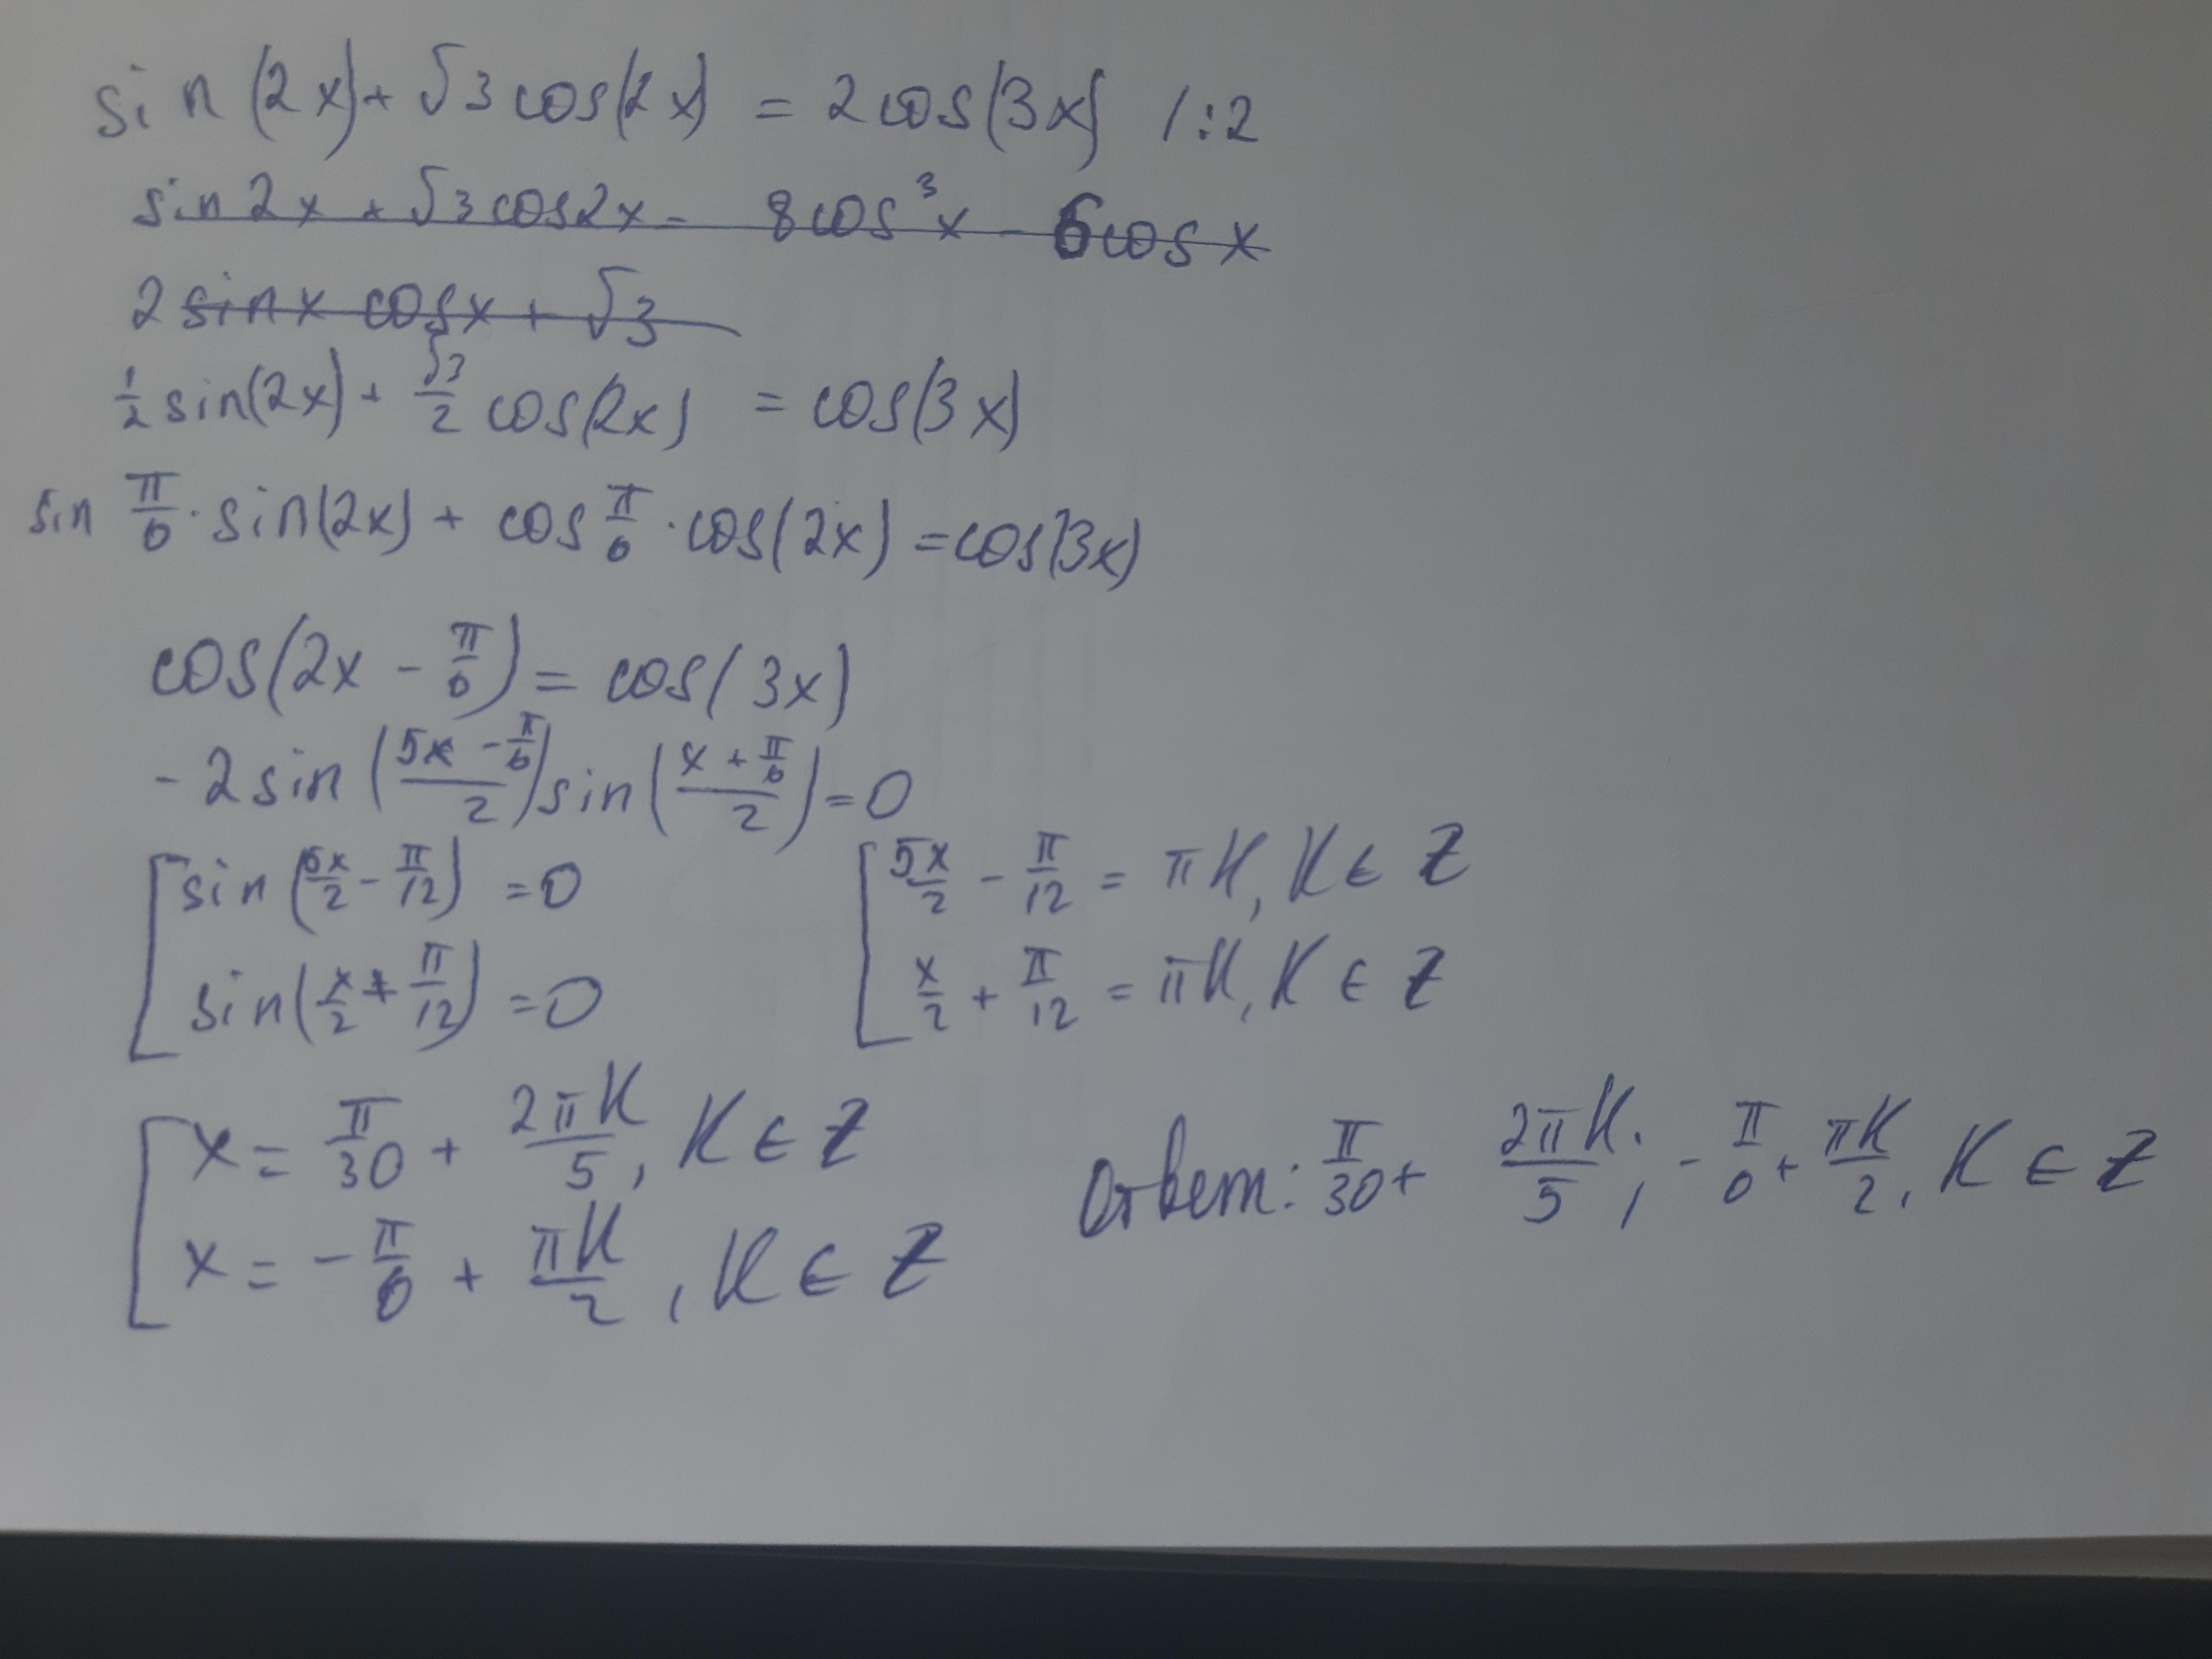 sin(2x)+√3cos(2x) = 2cos(3x) /:2
sin2x + √3cos2x = 8cos³x - 6cosx
2sinx cosx + √3
1/2 sin(2x) + √3/2 cos(2x) = cos(3x)
sin π/6 · sin(2x) + cos π/6 · cos(2x) = cos(3x)
cos(2x - π/6) = cos(3x)
-2sin((5x - π/6)/2)sin((x + π/6)/2) = 0
[sin(5x/2 - π/12) = 0
sin(x/2 + π/12) = 0
[5x/2 - π/12 = πK, K ∈ Z
x/2 + π/12 = πK, K ∈ Z
[x = π/30 + 2πK/5, K ∈ Z
x = -π/6 + πK/2, K ∈ Z
Ответ: π/30 + 2πK/5; -π/6 + πK/2, K ∈ Z